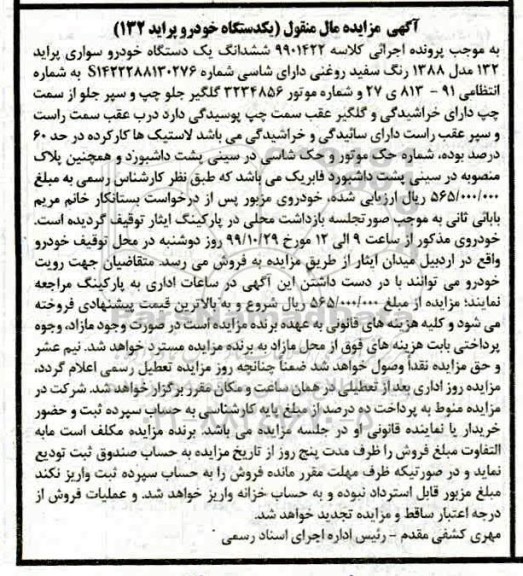 آگهی مزایده مال منقول (یکدستگاه خودرو پراید ۱۳۲)
به موجب پرونده اجرائی کلاسه ۹۹۰۱۴۲۲ ششدانگ یک دستگاه خودرو سواری پراید
۱۳۲ مدل ۱۳۸۸ رنگ سفید روغنی دارای شاسی شماره S۱۴۲۲۲۸۸۱۳۰۲۷۶ به شماره
انتظامی ۹۱ - ۸۱۳ ی ۲۷ و شماره موتور ۳۲۳۴۸۵۶ گلگیر جلو چپ و سپر جلو از سمت
چپ دارای خراشیدگی و گلگیر عقب سمت چپ پوسیدگی دارد درب عقب سمت راست
و سپر عقب راست دارای سائیدگی و خراشیدگی می باشد لاستیک ها کارکرده در حد ۶۰
درصد بوده، شماره حک موتور و حک شاسی در سینی پشت داشبورد و همچنین پلاک
منصوبه در سینی پشت داشبورد فابریک می باشد که طبق نظر کارشناس رسمی به مبلغ
۵۶۵/۰۰۰/۰۰۰ ریال ارزیابی شده، خودروی مزبور پس از درخواست بستانکار خانم مریم
بابائی ثانی به موجب صورتجلسه بازداشت محلی در پارکینگ ایثار توقیف گردیده است.
خودروی مذکور از ساعت ۹ الی ۱۲ مورخ ۹۹/۱۰/۲۹ روز دوشنبه در محل توقیف خودرو
واقع در اردبیل میدان ایثار از طریق مزایده به فروش می رسد. متقاضیان جهت رویت
خودرو می توانند با در دست داشتن این آگهی در ساعات اداری به پارکینگ مراجعه
نمایند؛ مزایده از مبلغ ۵۶۵/۰۰۰/۰۰۰ ریال شروع و به بالاترین قیمت پیشنهادی فروخته
می شود و کلیه هزینه های قانونی به عهده برنده مزایده است در صورت وجود مازاد، وجوه
پرداختی بابت هزینه های فوق از محل مازاد به برنده مزایده مسترد خواهد شد. نیم عشر
و حق مزایده نقداً وصول خواهد شد ضمناً چنانچه روز مزایده تعطیل رسمی اعلام گردد،
مزایده روز اداری بعد از تعطیلی در همان ساعت و مکان مقرر برگزار خواهد شد. شرکت در
مزایده منوط به پرداخت ده درصد از مبلغ پایه کارشناسی به حساب سپرده ثبت و حضور
خریدار یا نماینده قانونی او در جلسه مزایده می باشد. برنده مزایده مکلف است مابه
التفاوت مبلغ فروش را ظرف مدت پنج روز از تاریخ مزایده به حساب صندوق ثبت تودیع
نماید و در صورتیکه ظرف مهلت مقرر مانده فروش را به حساب سپرده ثبت واریز نکند
مبلغ مزبور قابل استرداد نبوده و به حساب خزانه واریز خواهد شد. و عملیات فروش از
درجه اعتبار ساقط و مزایده تجدید خواهد شد.
مهری کشفی مقدم - رئیس اداره اجرای اسناد رسمی